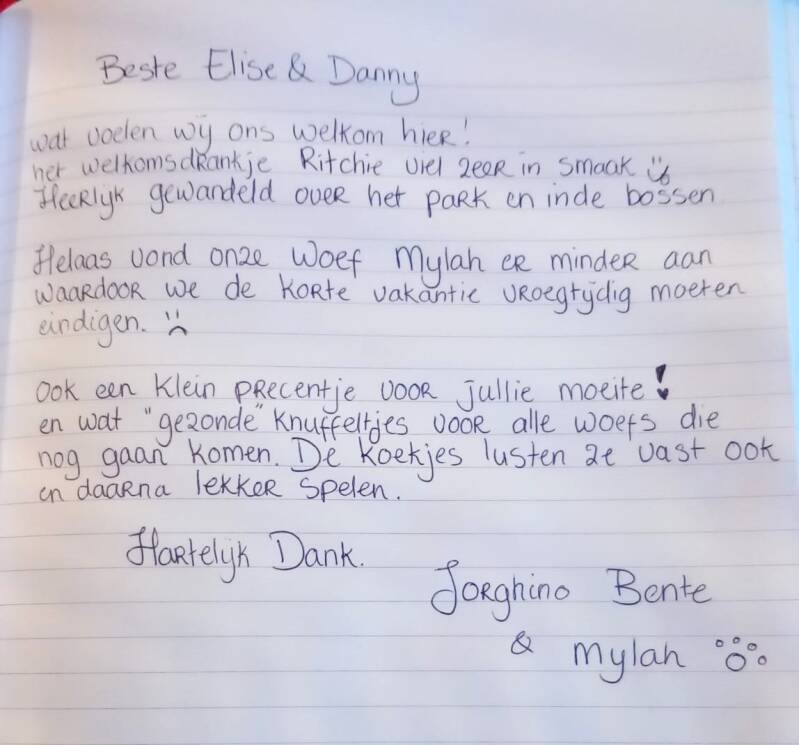 Beste Elise & Danny
wat voelen wij ons welkom hier!
het welkomsdrankje Ritchie viel zeer in smaak
Heerlijk gewandeld over het park en inde bossen
Helaas vond onze woef Mylah er minder aan
waardoor we de korte vakantie vroegtijdig moeten
eindigen.
ook een klein precentje voor jullie moeite!
en wat "gezonde" knuffeltjes voor alle woefs die
nog gaan komen. De koekjes lusten ze vast ook
en daarna lekker spelen.
Hartelijk Dank.
Jorghino Bente
& Mylah